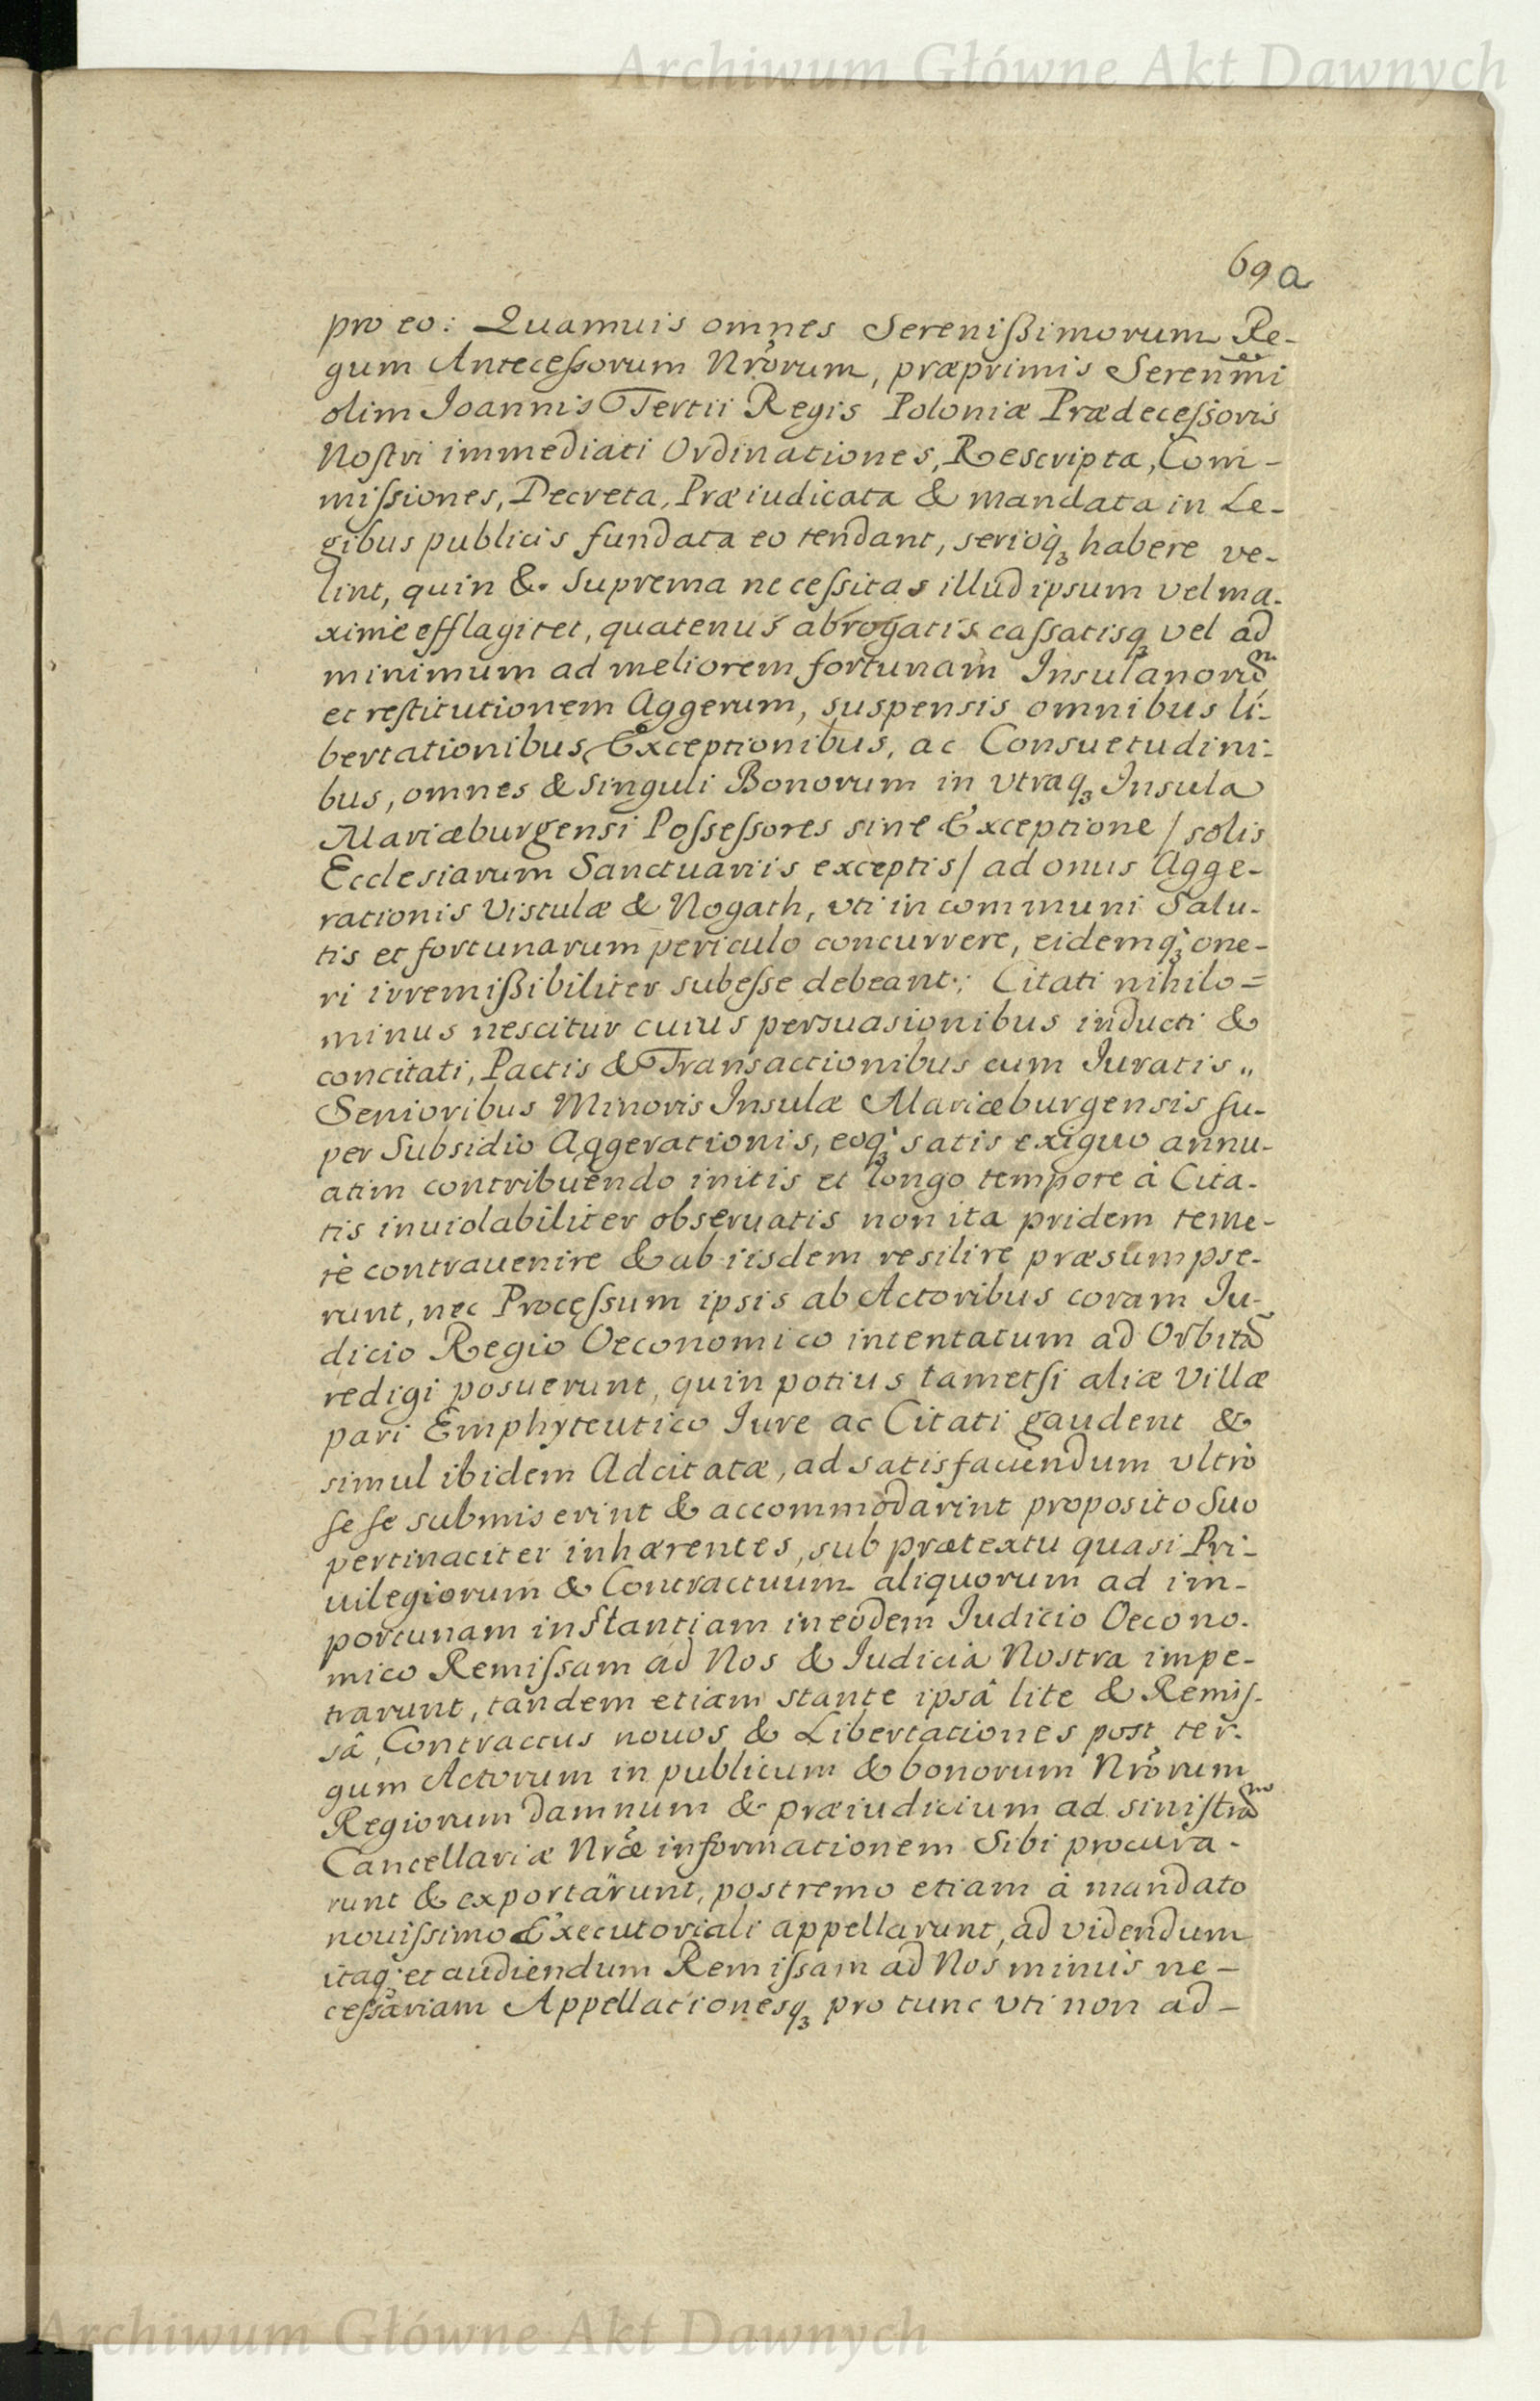 Archiwum Główne Akt Dawnych
69 a
pro eo: Quamuis omnes Serenißimorum Re-
gum Antecessorum Nrorum, præprimis Serenmi
olim Joannis Tertii Regis Poloniæ Prædecessoris
Nostri immediati Ordinationes, Rescripta, Com-
missiones, Decreta, Præiudicata & mandata in Le-
gibus publicis fundata eo tendant, serioq₃ habere ve-
lint, quin & Suprema necessitas illud ipsum vel ma-
ximè efflagitet, quatenus abrogatis cassatisq₃ vel ad
minimum ad meliorem fortunam Insulanorũ
et restitutionem Aggerum, suspensis omnibus li-
bertationibus, Exceptionibus, ac Consuetudini-
bus, omnes & singuli Bonorum in vtraq₃ Insula
Mariæburgensi Possessores sine Exceptione / solis
Ecclesiarum Sanctuariis exceptis / ad onus Agge-
rationis Vistulæ & Nogath, vti in communi Salu-
tis et fortunarum periculo concurrere, eidemq₃ one-
ri irremißibiliter subesse debeant; Citati nihilo=
minus nescitur cuius persuasionibus inducti &
concitati, Pactis & Transactionibus cum Juratis„
Senioribus Minoris Insulæ Mariæburgensis su-
per Subsidio Aggerationis, eoq₃ satis exiguo annu-
atim contribuendo initis et longo tempore à Cita-
tis inuiolabiliter obseruatis non ita pridem teme-
rè contrauenire & ab iisdem resilire præsumpse-
runt, nec Processum ipsis ab Actoribus coram Iu-
dicio Regio Oeconomico intentatum ad Orbitã
redigi posuerunt, quin potius tametsi aliæ Villæ
pari Emphyteutico Jure ac Citati gaudent &
simul ibidem Adcitatæ, ad satisfaciendum vltrò
sese submiserint & accommodarint proposito Suo
pertinaciter inhærentes, sub prætextu quasi Pri-
uilegiorum & Contractuum aliquorum ad im-
portunam instantiam in eodem Judicio Oecono-
mico Remissam ad Nos & Judicia Nostra impe-
trarunt, tandem etiam stante ipsâ lite & Remis-
sâ, Contractus nouos & Libertationes post ter-
gum Actorum in publicum & bonorum Nrorum
Regiorum damnum & præiudicium ad sinistrã
Cancellariæ Nræ informationem Sibi procura-
runt & exportârunt, postremo etiam à mandato
nouissimo Executoriali appellarunt, ad videndum
itaq₃ et audiendum Remissam ad Nos minus ne-
cessariam Appellationesq₃ pro tunc vti non ad-
Archiwum Główne Akt Dawnych